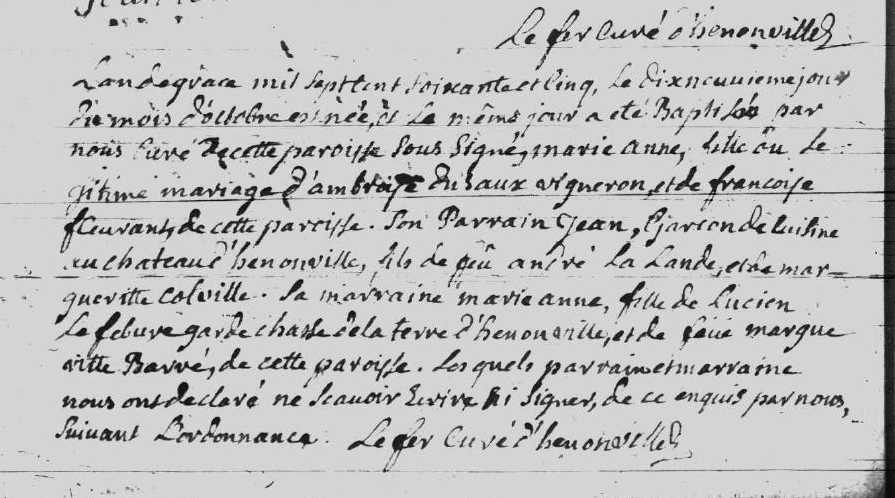 Le fer Curé d'henonville
Lan de grace mil sept Cent soixante et Cinq, Le dixneuvieme jour
du mois d'octobre est née, et Le même jour a eté Baptisée par
nous Curé de cette paroisse sous Signé, marie anne, fille du Le
gitime mariage d'ambroise vigneron, et de francoise
fleurant, de cette paroisse. Son Parrain Jean, Garcon de Cuisine
au chateau d'henonville, fils de feû andré La Lande, et de mar-
gueritte Colville. Sa marraine marie anne, fille de Lucien
Le febure garde chasse de la terre d'henonville, et de feüe margue
ritte Barré, de cette paroisse. Lesquels parrain et marraine
nous ont declaré ne scavoir Ecrire ni signer, de ce enquis par nous,
suivant L'ordonnance. Le fer Curé d'henonville